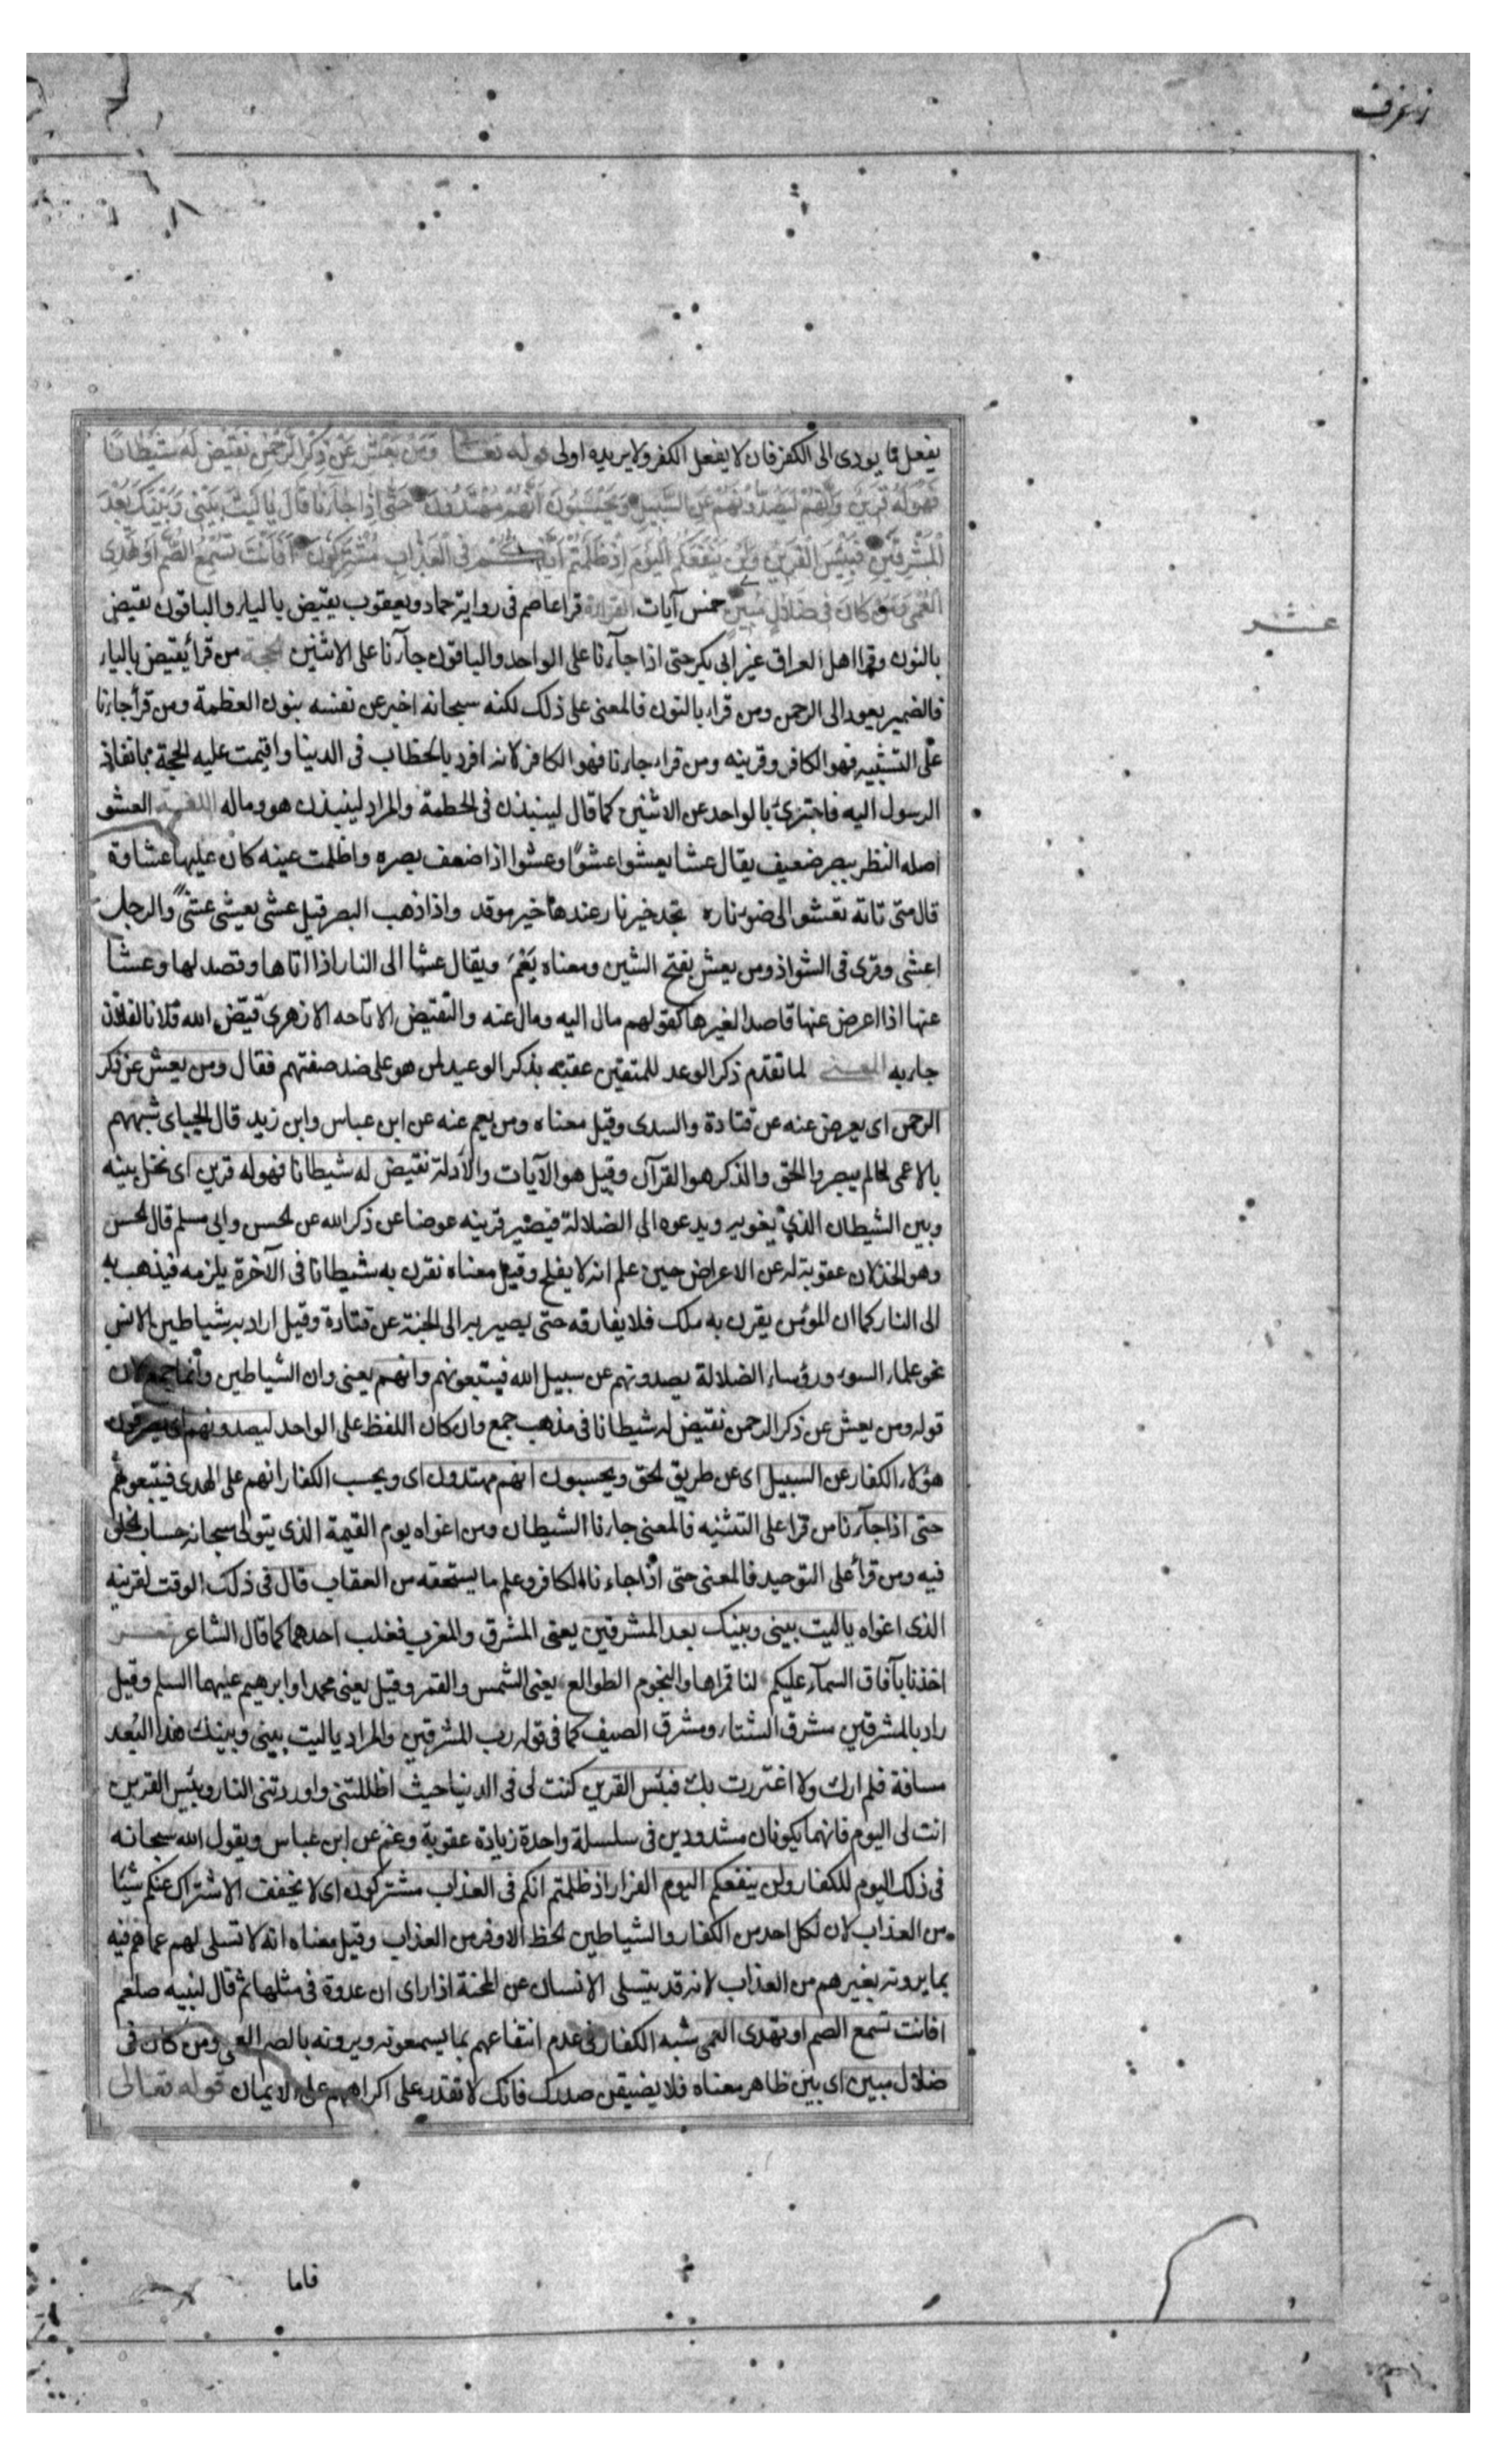 زخرف
يفعل ما يودى الى الكفر فان لا يفعل الكفر ولا يريده اولى قوله تعالى وَمَنْ يَعْشُ عَنْ ذِكْرِ الرَّحْمٰنِ نُقَيِّضْ لَهُ شَيْطَانًا
فَهُوَ لَهُ قَرِينٌ وَاِنَّهُمْ لَيَصُدُّونَهُمْ عَنِ السَّبِيلِ وَيَحْسَبُونَ اَنَّهُمْ مُهْتَدُونَ حَتّٰى اِذَا جَاۤءَنَا قَالَ يَا لَيْتَ بَيْنِى وَبَيْنَكَ بُعْدَ
الْمَشْرِقَيْنِ فَبِئْسَ الْقَرِينُ وَلَنْ يَنْفَعَكُمُ الْيَوْمَ اِذْ ظَلَمْتُمْ اَنَّكُمْ فِى الْعَذَابِ مُشْتَرِكُونَ اَفَاَنْتَ تُسْمِعُ الصُّمَّ اَوْ تَهْدِى
الْعُمْىَ وَمَنْ كَانَ فِى ضَلَالٍ مُبِينٍ خمس آيات القراءة قرا عاصم فى رواية حماد ويعقوب يقيض بالياء والباقون نقيض
بالنون وقرا اهل العراق غير ابى بكر حتى اذا جآءنا على الواحد والباقون جآءانا على الاثنين الحجة من قرأ يقيض بالياء
فالضمير يعود الى الرحمن ومن قراء بالنون فالمعنى على ذلك لكنه سبحانه اخبر عن نفسه بنون العظمة ومن قرأ جاءانا
على التثنيه فهو الكافر وقرينه ومن قراء جاءنا فهو الكافر لانه افرد بالخطاب فى الدنيا واقيمت عليه الحجة بانفاذ
الرسول اليه فاجتزئ بالواحد عن الاثنين كما قال لينبذن فى الحطمة والمراد لينبذن هو وماله اللغة العشو
اصله النظر ببصر ضعيف يقال عشا يعشو عشوًا وعشوا اذا ضعف بصره واظلمت عينه كان عليها غشاوة
قال متى تاته تعشو الى ضوء ناره تجد خير نار عندها خير موقد واذا ذهب البصر قيل عشى يعشى عشىً والرجل
اعشى وقرى فى الشواذ ومن يعش بفتح الشين ومعناه يَعْمَ ويقال عشا الى النار اذا اتاها وقصد لها وعشا
عنها اذا اعرض عنها قاصدا لغيرها كقولهم مال اليه ومال عنه والتقييض الاتاحه الازهرى قيّض الله فلانا لفلان
جاء به المعنى لما تقدم ذكر الوعد للمتقين عقبه بذكر الوعيد لمن هو على ضد صفتهم فقال ومن يعش عن ذكر
الرحمن اى يعرض عنه عن قتادة والسدى وقيل معناه ومن يعم عنه عن ابن عباس وابن زيد قال الجباى شبههم
بالاعمى لما لم يبصروا الحق والذكر هو القرآن وقيل هو الآيات والأدلة نقيض له شيطانا فهو له قرين اى نخل بينه
وبين الشيطان الذى يغويه ويدعوه الى الضلالة فيصير قرينه عوضا عن ذكر الله عن الحسن وابى مسلم قال الحسن
وهو الخذلان عقوبة له عن الاعراض حين علم انه لا يفلح وقيل معناه نقرن به شيطانا فى الآخرة يلزمه فيذهب به
الى النار كما ان المؤمن يقرن به ملك فلا يفارقه حتى يصير به الى الجنة عن قتادة وقيل اراد به شياطين الانس
نحو علماء السوء ورؤساء الضلالة يصدونهم عن سبيل الله فيتبعونهم وانهم يعنى وان الشياطين وانما جمع لان
قوله ومن يعش عن ذكر الرحمن نقيض له شيطانا فى مذهب جمع وان كان اللفظ على الواحد ليصدونهم اى يصرفون
هؤلاء الكفار عن السبيل اى عن طريق الحق ويحسبون انهم مهتدون اى ويحسب الكفار انهم على الهدى فيتبعونهم
حتى اذا جآءنا من قرا على التثنيه فالمعنى جاءنا الشيطان ومن اغواه يوم القيمة الذى يتولى سبحانه حساب الخلق
فيه ومن قرأ على التوحيد فالمعنى حتى اذا جاءنا الكافر وعلم ما يستحقه من العقاب قال فى ذلك الوقت لقرينه
الذى اغواه ياليت بينى وبينك بعد المشرقين يعنى المشرق والمغرب فغلب احدهما كما قال الشاعر شعر
اخذنا بآفاق السمآء عليكم لنا قمراها والنجوم الطوالع يعنى الشمس والقمر وقيل يعنى محمدا وابرهيم عليهما السلم وقيل
راد بالمشرقين مشرق الشتاء ومشرق الصيف كما فى قوله رب المشرقين والمراد ياليت بينى وبينك هذا البُعد
مسافة فلم ارك ولا اغتررت بك فبئس القرين كنت لى فى الدنيا حيث اظللتنى واوردتنى النار وبئس القرين
انت لى اليوم فانهما يكونان مشدودين فى سلسلة واحدة زيادة عقوبة وغم عن ابن عباس ويقول الله سبحانه
فى ذلك اليوم للكفار ولن ينفعكم اليوم الفرار اذ ظلمتم انكم فى العذاب مشتركون اى لا يخفف الاشتراك عنكم شيئا
من العذاب لان لكل احد من الكفار والشياطين لحظ الاوفر من العذاب وقيل معناه انه لا تسلى لهم عما هم فيه
بما يرونه بغيرهم من العذاب لانه قد يتسلى الانسان عن المحنة اذا راى ان عدوه فى مثلها ثم قال لنبيه صلعم
افانت تسمع الصم او تهدى العمى شبه الكفار فى عدم انتفاعهم بما يسمعونه ويرونه بالصم العمى ومن كان فى
ضلال مبين اى بين ظاهر معناه فلا يضيقن صدرك فانك لا تقدر على اكراههم على الايمان قوله تعالى
عشر
فاما